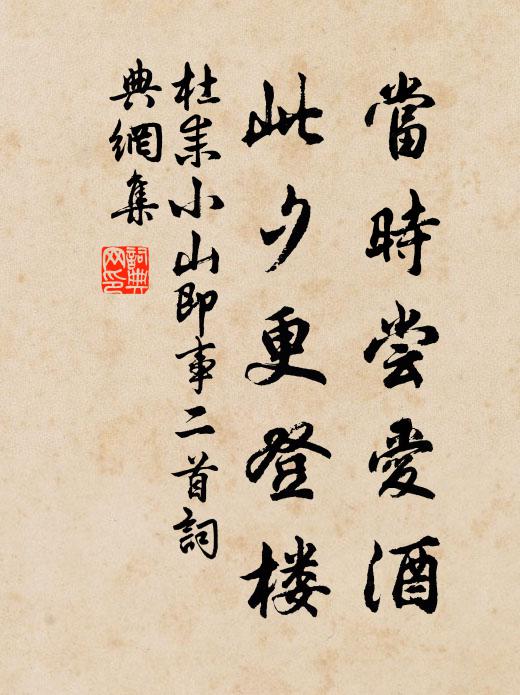 當時尝愛酒
此夕更登楼
杜耒小山即事二首詞
典網集
詞典网印